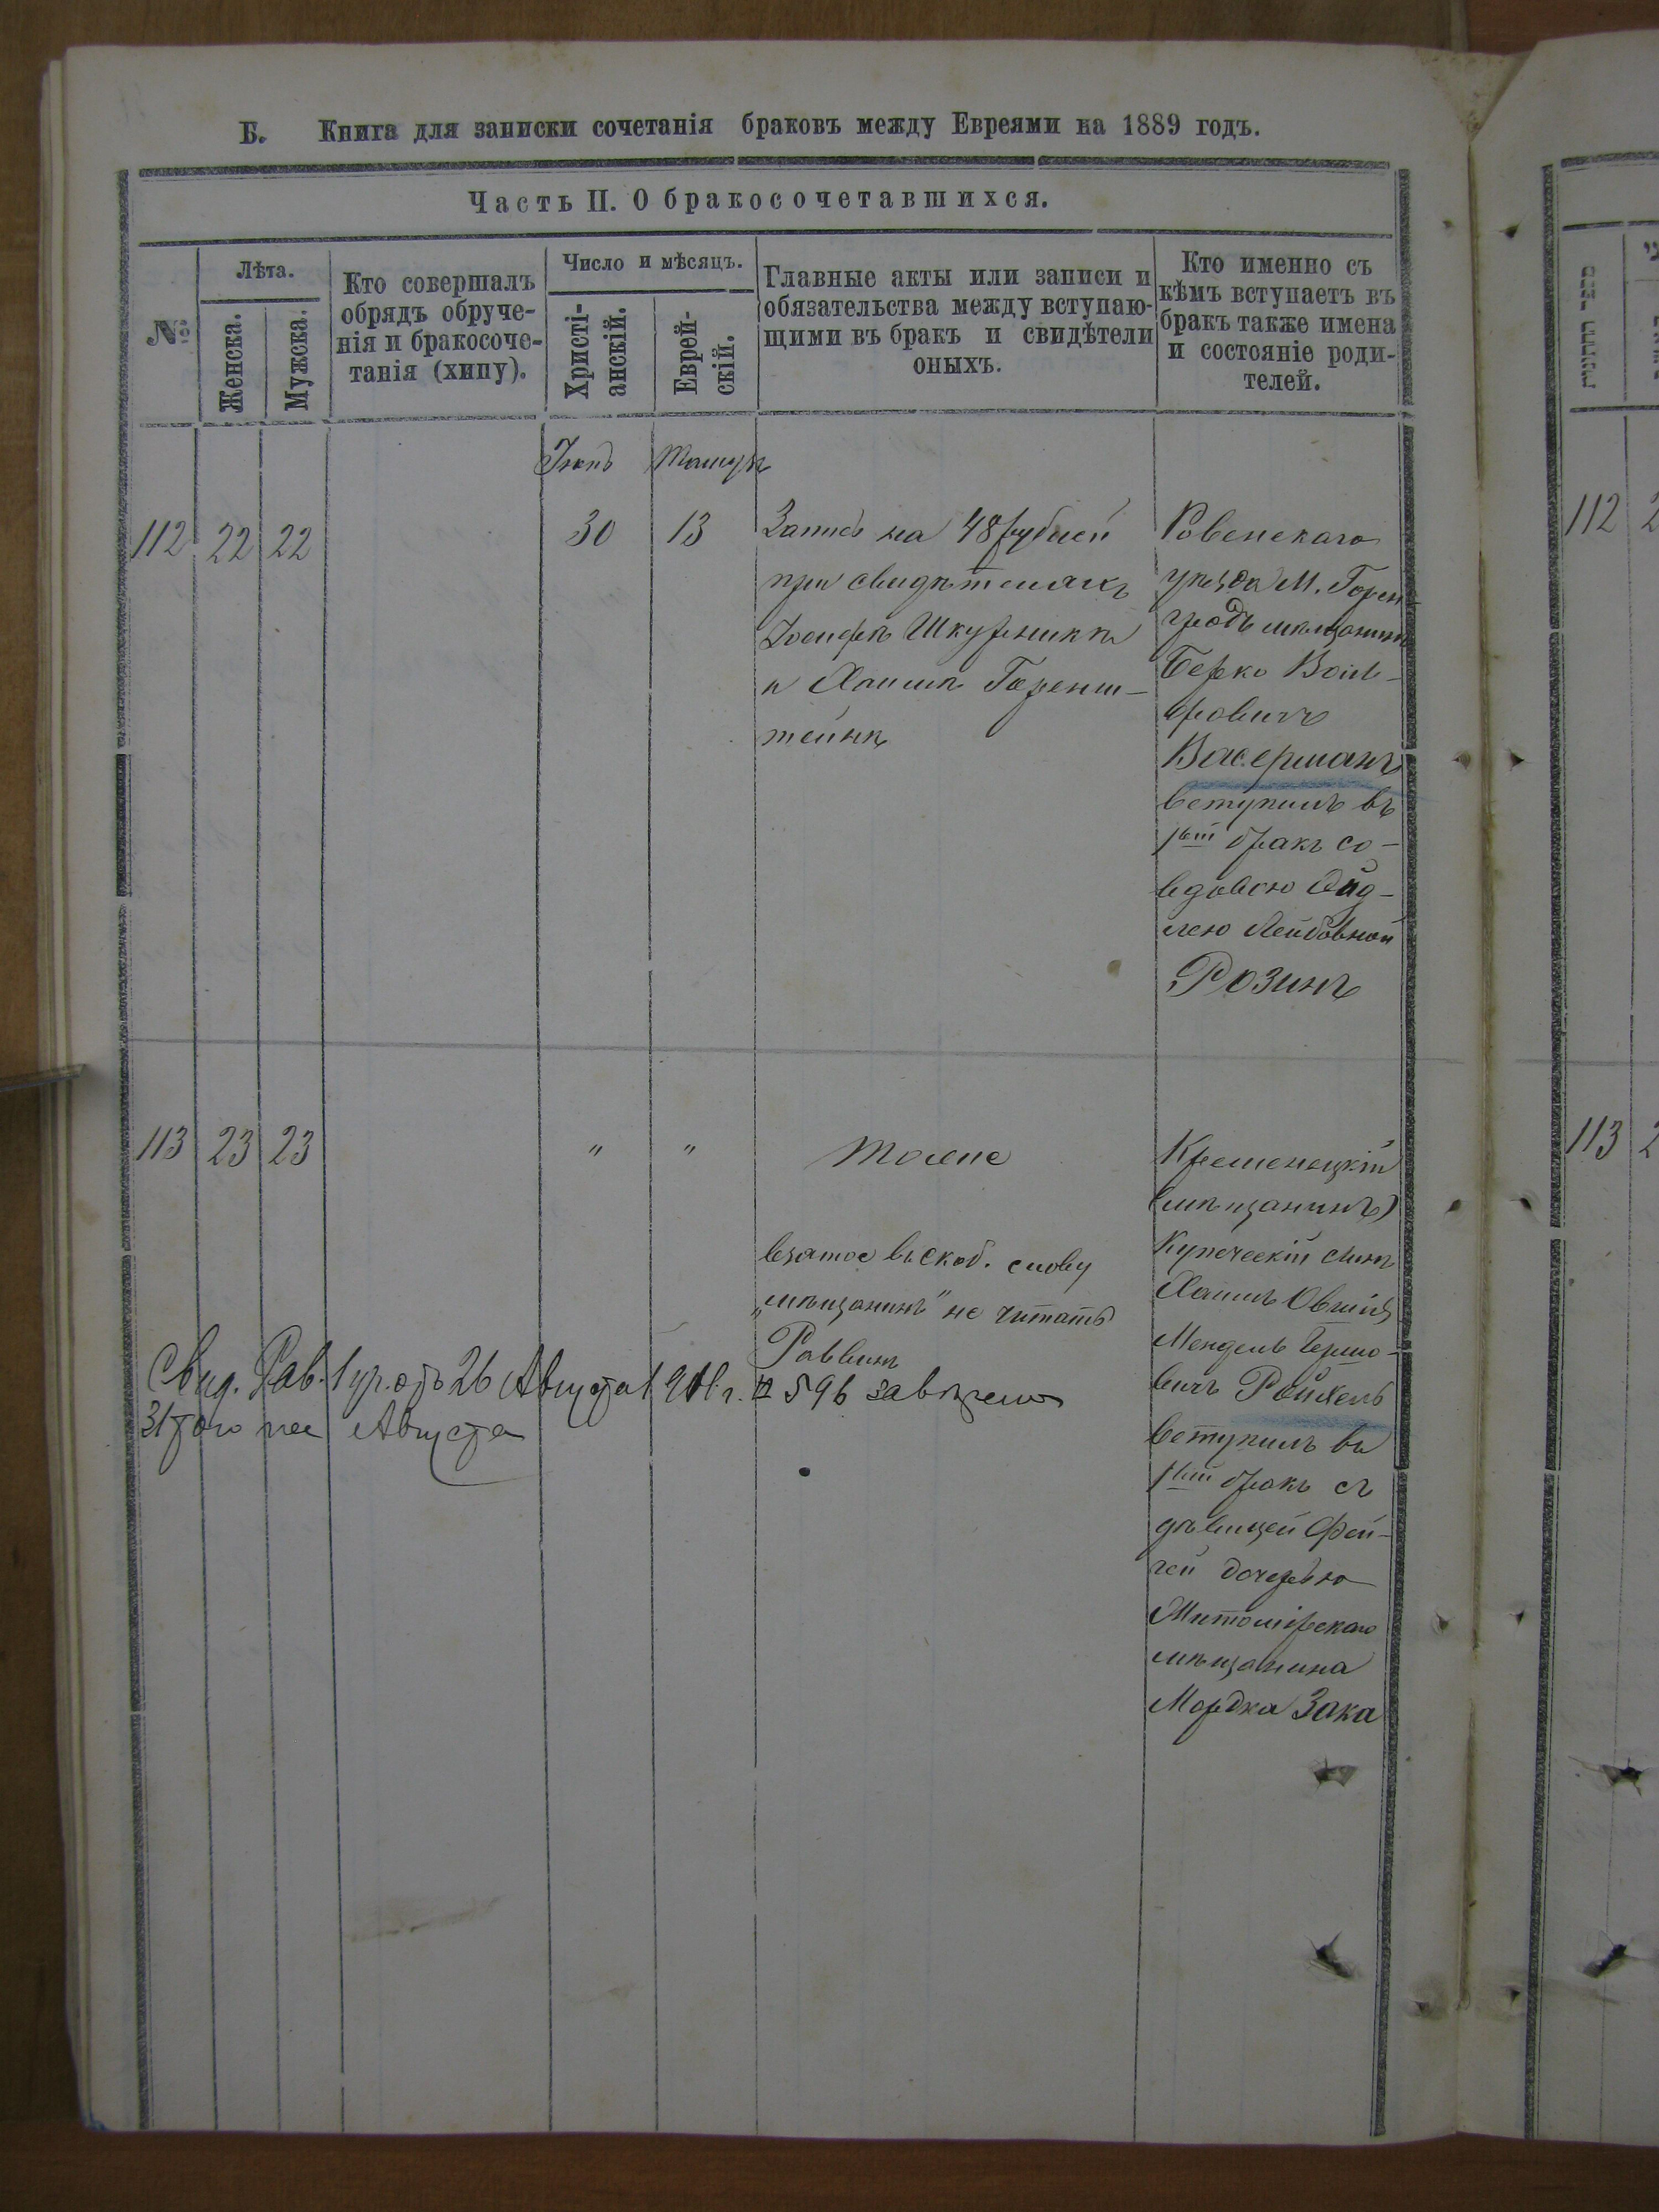 Б. Книга для записки сочетанія браковъ между Евреями на 1889 годъ.
Часть II. О бракосочетавшихся.
№
Лѣта.
Женска.
Мужска.
Кто совершалъ
обрядъ обруче-
нія и бракосоче-
танія (хипу).
Число и мѣсяцъ.
Христі-
анскій.
Еврей-
скій.
Главные акты или записи и
обязательства между вступаю-
щими въ бракъ и свидѣтели
оныхъ.
Кто именно съ
кѣмъ вступаетъ въ
бракъ также имена
и состояніе роди-
телей.
112 22 22
30 13
Запись на 48 рублей
при свидѣтеляхъ
Іосифѣ Шкурникѣ
и Хаимѣ Горенш-
тейнѣ
Ровенскаго
уѣзда М. Горин-
градъ мѣщанинъ
Берко Воль-
фовичъ
Васерманъ
вступилъ въ
1ый бракъ со
вдовою
лею Лейбовной
Розинъ
113 23 23
" "
Тоже
взятое въ скоб. слову
„мѣщанинъ" не читать
Раввинъ
Кременецкій
(мѣщанинъ)
Купеческій сынъ
Хаимъ Овшій
Мендель Гершо-
вичъ Рейхель
вступилъ въ
1ый бракъ съ
дѣвицей Фей-
гей дочерью
Житомірскаго
мѣщанина
Мордка Зака
Свид. Рав. отъ 26 Августа г. № 596 завѣрено
31 того же Августа
112
113
מספר החתונות